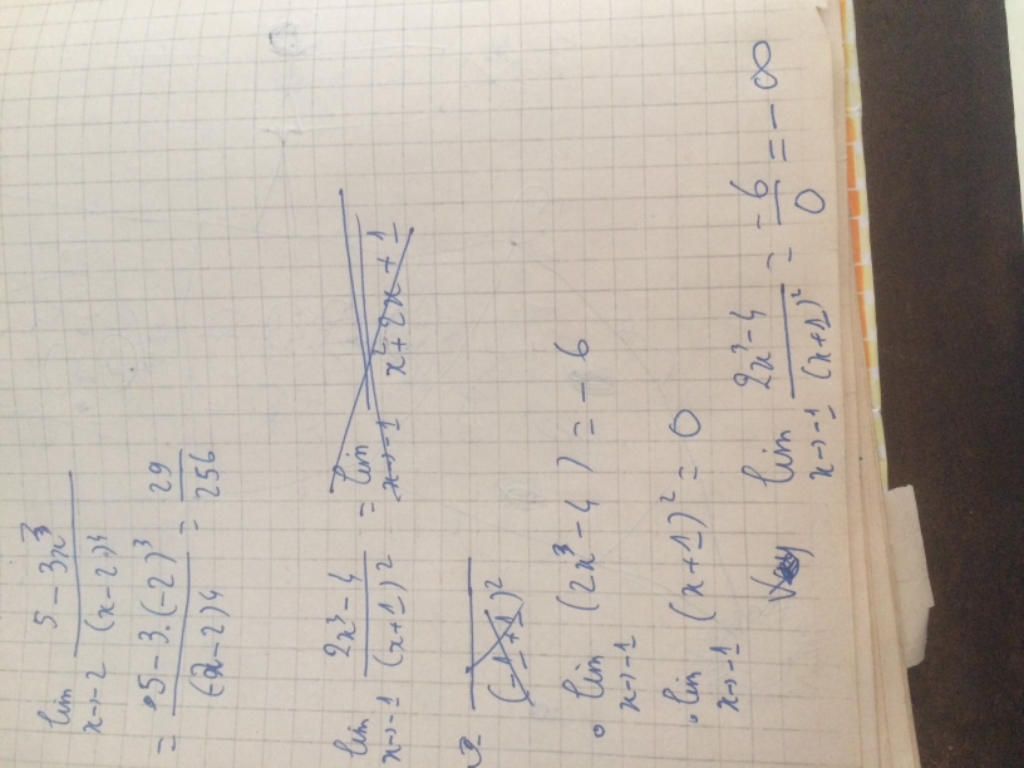 lim x→-2 (5 - 3x³)/(x-2)⁴
= (5-3.(-2)³)/(-2-2)4 = 29/256
lim x→-1 (2x³-4)/(x+1)² = lim x→-1 x²+2x+1
(-1+1)²
lim x→-1 (2x³-4) = -6
lim x→-1 (x+1)² = 0
Vậy lim x→-1 (2x³-4)/(x+1)² = -6/0 = -∞